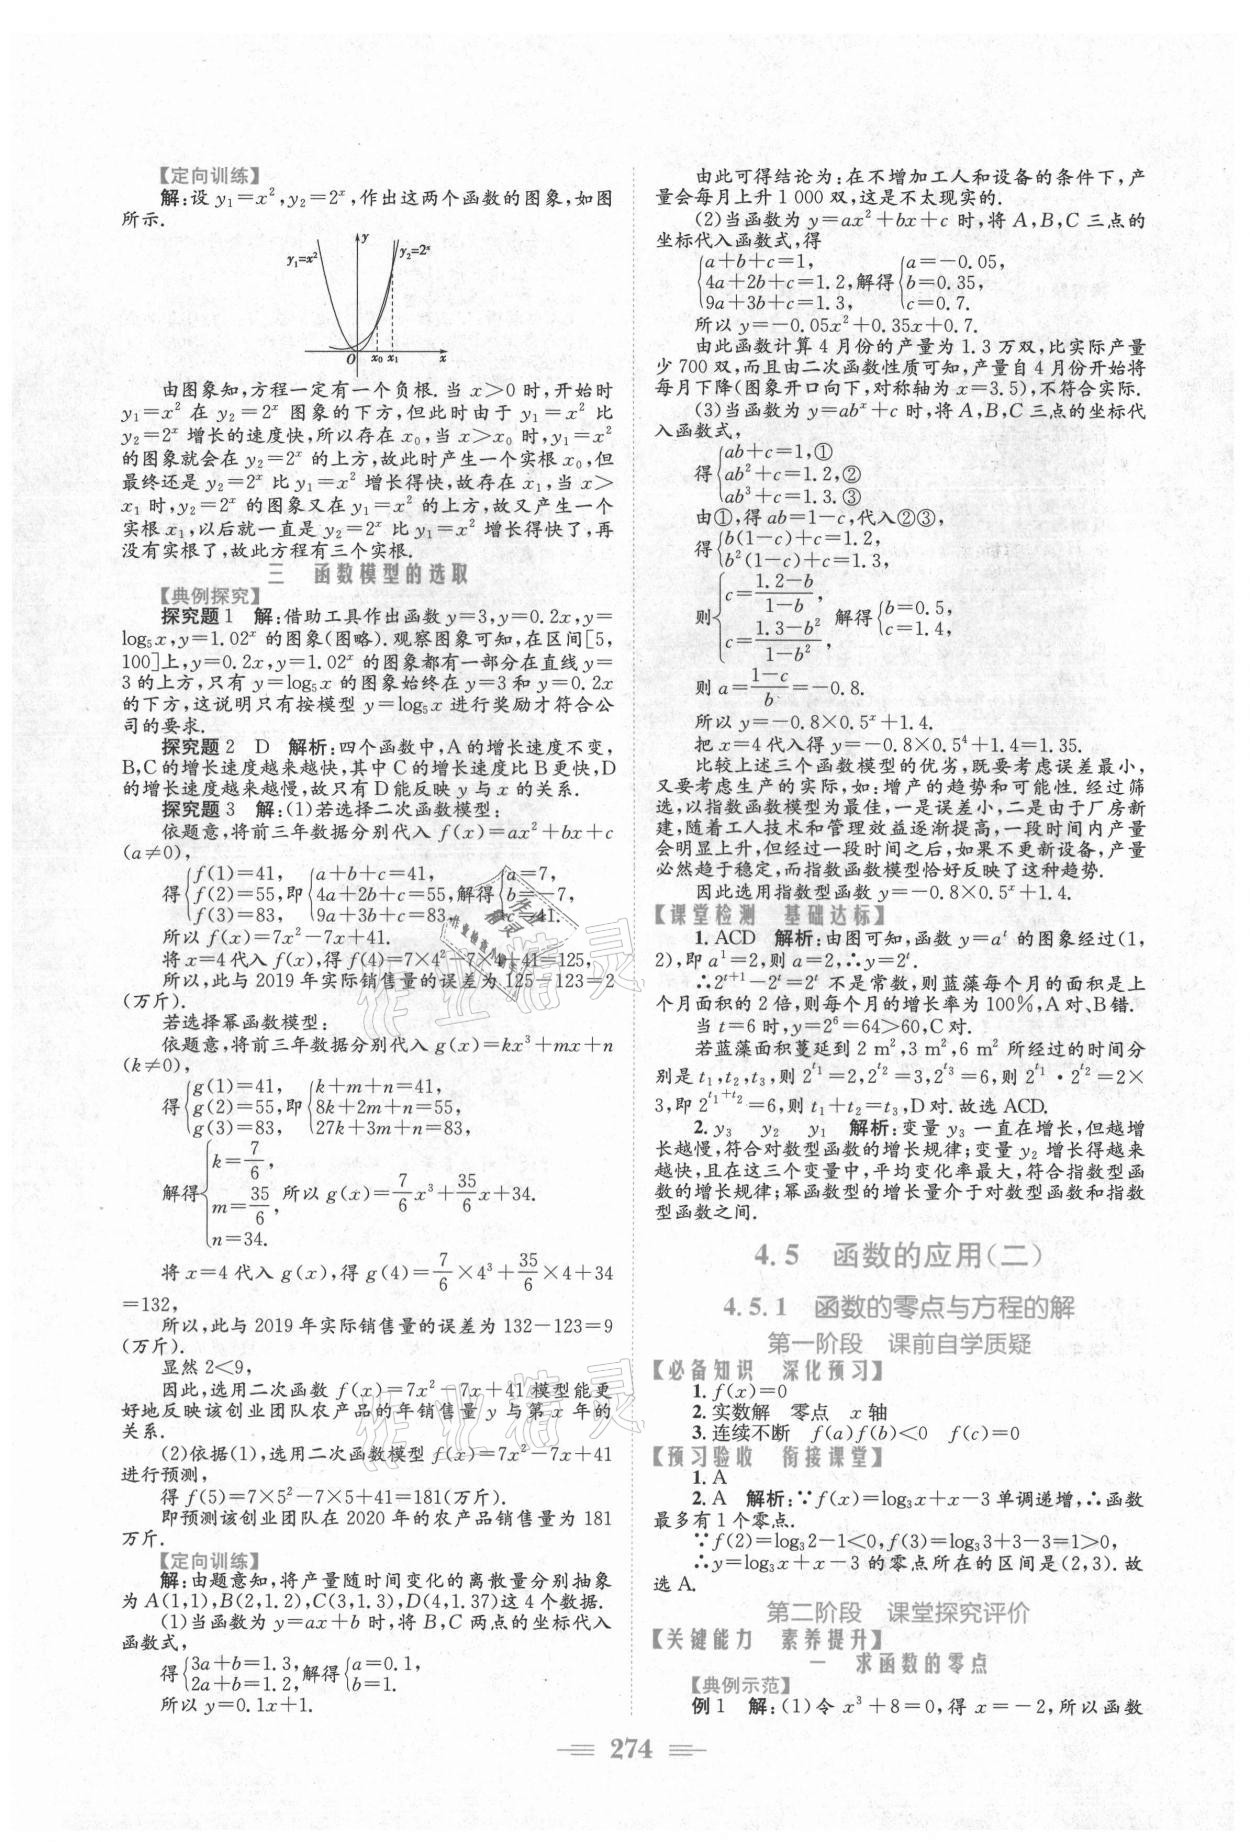 【定向训练】
解:设 y₁=x²,y₂=2ˣ,作出这两个函数的图象,如图
所示.
y
y₁=x²
y₂=2ˣ
O x₀ x₁ x
由图象知,方程一定有一个负根.当 x>0 时,开始时
y₁=x² 在 y₂=2ˣ 图象的下方,但此时由于 y₁=x² 比
y₂=2ˣ 增长的速度快,所以存在 x₀,当 x>x₀ 时,y₁=x²
的图象就会在 y₂=2ˣ 的上方,故此时产生一个实根 x₀,但
最终还是 y₂=2ˣ 比 y₁=x² 增长得快,故存在 x₁,当 x>
x₁ 时,y₂=2ˣ 的图象又在 y₁=x² 的上方,故又产生一个
实根 x₁,以后就一直是 y₂=2ˣ 比 y₁=x² 增长得快了,再
没有实根了,故此方程有三个实根.
三 函数模型的选取
【典例探究】
探究题 1 解:借助工具作出函数 y=3,y=0.2x,y=
log₅x,y=1.02ˣ 的图象(图略).观察图象可知,在区间[5,
100]上,y=0.2x,y=1.02ˣ 的图象都有一部分在直线 y=
3 的上方,只有 y=log₅x 的图象始终在 y=3 和 y=0.2x
的下方,这说明只有按模型 y=log₅x 进行奖励才符合公
司的要求.
探究题 2 D 解析:四个函数中,A 的增长速度不变,
B,C 的增长速度越来越快,其中 C 的增长速度比 B 更快,D
的增长速度越来越慢,故只有 D 能反映 y 与 x 的关系.
探究题 3 解:(1)若选择二次函数模型:
依题意,将前三年数据分别代入 f(x)=ax²+bx+c
(a≠0),
得{f(1)=41, f(2)=55, f(3)=83, 即{a+b+c=41, 4a+2b+c=55, 9a+3b+c=83, 解得{a=7, b=-7, c=41.
所以 f(x)=7x²-7x+41.
将 x=4 代入 f(x),得 f(4)=7×4²-7×4+41=125,
所以,此与 2019 年实际销售量的误差为 125-123=2
(万斤).
若选择幂函数模型:
依题意,将前三年数据分别代入 g(x)=kx³+mx+n
(k≠0),
得{g(1)=41, g(2)=55, g(3)=83, 即{k+m+n=41, 8k+2m+n=55, 27k+3m+n=83,
解得{k=7/6, m=35/6, n=34. 所以 g(x)=7/6x³+35/6x+34.
将 x=4 代入 g(x),得 g(4)=7/6×4³+35/6×4+34
=132,
所以,此与 2019 年实际销售量的误差为 132-123=9
(万斤).
显然 2<9,
因此,选用二次函数 f(x)=7x²-7x+41 模型能更
好地反映该创业团队农产品的年销售量 y 与第 x 年的
关系.
(2)依据(1),选用二次函数模型 f(x)=7x²-7x+41
进行预测,
得 f(5)=7×5²-7×5+41=181(万斤).
即预测该创业团队在 2020 年的农产品销售量为 181
万斤.
【定向训练】
解:由题意知,将产量随时间变化的离散量分别抽象
为 A(1,1),B(2,1.2),C(3,1.3),D(4,1.37)这 4 个数据.
(1)当函数为 y=ax+b 时,将 B,C 两点的坐标代入
函数式,
得{3a+b=1.3, 2a+b=1.2, 解得{a=0.1, b=1.
所以 y=0.1x+1.
由此可得结论为:在不增加工人和设备的条件下,产
量会每月上升 1 000 双,这是不太现实的.
(2)当函数为 y=ax²+bx+c 时,将 A,B,C 三点的
坐标代入函数式,得
{a+b+c=1, 4a+2b+c=1.2, 9a+3b+c=1.3, 解得{a=-0.05, b=0.35, c=0.7.
所以 y=-0.05x²+0.35x+0.7.
由此函数计算 4 月份的产量为 1.3 万双,比实际产量
少 700 双,而且由二次函数性质可知,产量自 4 月份开始将
每月下降(图象开口向下,对称轴为 x=3.5),不符合实际.
(3)当函数为 y=abˣ+c 时,将 A,B,C 三点的坐标代
入函数式,
得{ab+c=1,① ab²+c=1.2,② ab³+c=1.3.③
由①,得 ab=1-c,代入②③,
得{b(1-c)+c=1.2, b²(1-c)+c=1.3,
则{c=(1.2-b)/(1-b), c=(1.3-b²)/(1-b²), 解得{b=0.5, c=1.4,
则 a=(1-c)/b=-0.8.
所以 y=-0.8×0.5ˣ+1.4.
把 x=4 代入得 y=-0.8×0.5⁴+1.4=1.35.
比较上述三个函数模型的优劣,既要考虑误差最小,
又要考虑生产的实际,如:增产的趋势和可能性.经过筛
选,以指数函数模型为最佳,一是误差小,二是由于厂房新
建,随着工人技术和管理效益逐渐提高,一段时间内产量
会明显上升,但经过一段时间之后,如果不更新设备,产量
必然趋于稳定,而指数函数模型恰好反映了这种趋势.
因此选用指数型函数 y=-0.8×0.5ˣ+1.4.
【课堂检测 基础达标】
1. ACD 解析:由图可知,函数 y=aᵗ 的图象经过(1,
2),即 a¹=2,则 a=2,∴y=2ᵗ.
∴2ᵗ⁺¹-2ᵗ=2ᵗ 不是常数,则蓝藻每个月的面积是上
个月面积的 2 倍,则每个月的增长率为 100%,A 对、B 错.
当 t=6 时,y=2⁶=64>60,C 对.
若蓝藻面积蔓延到 2 m²,3 m²,6 m² 所经过的时间分
别是 t₁,t₂,t₃,则 2^t₁=2,2^t₂=3,2^t₃=6,则 2^t₁·2^t₂=2×
3,即 2^(t₁+t₂)=6,则 t₁+t₂=t₃,D 对.故选 ACD.
2. y₃ y₂ y₁ 解析:变量 y₃ 一直在增长,但越增
长越慢,符合对数型函数的增长规律;变量 y₂ 增长得越来
越快,且在这三个变量中,平均变化率最大,符合指数型函
数的增长规律;幂函数型的增长量介于对数型函数和指数
型函数之间.
4.5 函数的应用(二)
4.5.1 函数的零点与方程的解
第一阶段 课前自学质疑
【必备知识 深化预习】
1. f(x)=0
2. 实数解 零点 x 轴
3. 连续不断 f(a)f(b)<0 f(c)=0
【预习验收 衔接课堂】
1. A
2. A 解析:∵f(x)=log₃x+x-3 单调递增,∴函数
最多有 1 个零点.
∵f(2)=log₃2-1<0,f(3)=log₃3+3-3=1>0,
∴y=log₃x+x-3 的零点所在的区间是(2,3).故
选 A.
第二阶段 课堂探究评价
【关键能力 素养提升】
一 求函数的零点
【典例示范】
例 1 解:(1)令 x³+8=0,得 x=-2,所以函数
274
作业精灵
作业精灵